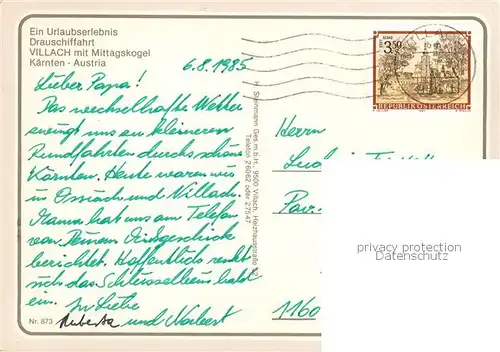 Ein Urlaubserlebnis
Drauschiffahrt
VILLACH mit Mittagskogel
Kärnten - Austria
6.8.1985
Lieber Papa!
Das wechselhafte Wetter
zwingt uns zu kleineren
Rundfahrten durchs schöne
Kärnten. Heute waren wir
in Ossiach und Villach.
Mama hat uns am Telefon
von Deinem Mißgeschick
berichtet. Hoffentlich renkt
sich das Schlüsselbein bald
ein. In Liebe
und Norbert
Nr. 873
H. Steinmann Ges.m.b.H., 9500 Villach, Heizhausstraße
Telefon 26062 oder 27547
3.50
REPUBLIK ÖSTERREICH
VILLA
Herrn
1160
privacy protection
Datenschutz